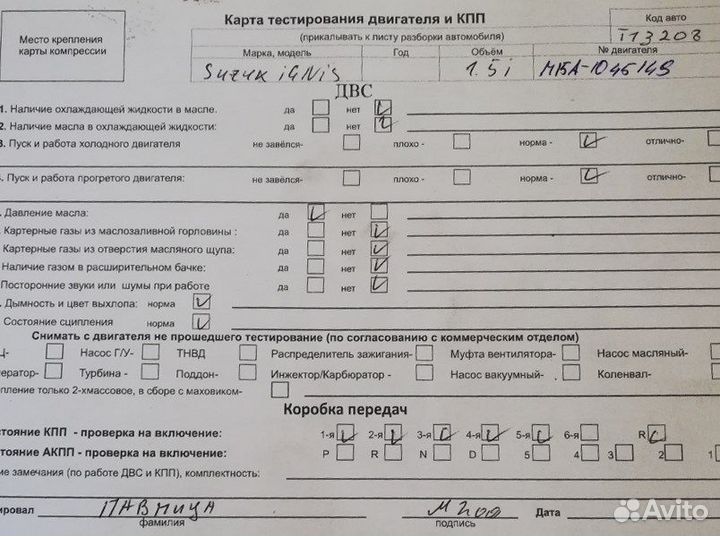 Карта тестирования двигателя и КПП
Место крепления
карты компрессии
(прикалывать к листу разборки автомобиля)
Код авто
T13208
Марка, модель Год Объём № двигателя
Suzuki iGNis 1.5i M15A-1045149
ДВС
1. Наличие охлаждающей жидкости в масле. да нет
2. Наличие масла в охлаждающей жидкости: да нет
3. Пуск и работа холодного двигателя не завёлся- плохо - норма - отлично-
. Пуск и работа прогретого двигателя: не завёлся- плохо - норма - отлично-
. Давление масла: да нет
. Картерные газы из маслозаливной горловины : да нет
Картерные газы из отверстия масляного щупа: да нет
Наличие газом в расширительном бачке: да нет
Посторонние звуки или шумы при работе да нет
. Дымность и цвет выхлопа: норма
Состояние сцепления норма
Снимать с двигателя не прошедшего тестирование (по согласованию с коммерческим отделом)
Ц- Насос Г/У- ТНВД Распределитель зажигания- Муфта вентилятора- Насос масляный-
ератор- Турбина - Поддон- Инжектор/Карбюратор - Насос вакуумный- Коленвал-
пление только 2-хмассовое, в сборе с маховиком-
Коробка передач
стояние КПП - проверка на включение: 1-я 2-я 3-я 4-я 5-я 6-я R
стояние АКПП - проверка на включение: P R N D 5 4 3 2 1
ие замечания (по работе ДВС и КПП), комплектность:
ировал ПАВЛИЦА Дата
фамилия подпись
Avito